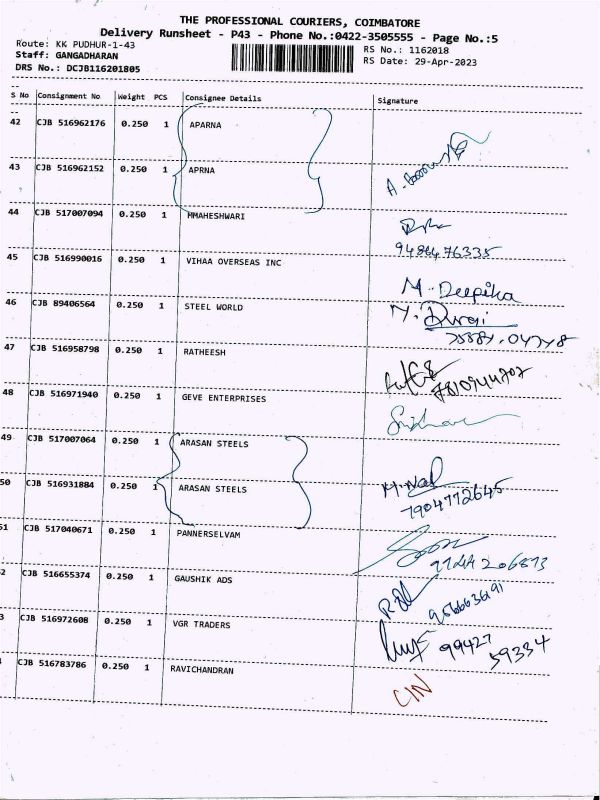 THE PROFESSIONAL COURIERS, COIMBATORE
Delivery Runsheet - P43 - Phone No.:0422-3505555 - Page No.:5
Route: KK PUDHUR-1-43
RS No.: 1162018
Staff: GANGADHARAN
RS Date: 29-Apr-2023
DRS No.: DCJB116201805
S No Consignment No Weight PCS Consignee Details Signature
42 CJB 516962176 0.250 1 APARNA
43 CJB 516962152 0.250 1 APRNA
44 CJB 517007094 0.250 1 MMAHESHWARI
9486476335
45 CJB 516990016 0.250 1 VIHAA OVERSEAS INC
M. Deepika
46 CJB 89406564 0.250 1 STEEL WORLD
47 CJB 516958798 0.250 1 RATHEESH
48 CJB 516971940 0.250 1 GEVE ENTERPRISES
49 CJB 517007064 0.250 1 ARASAN STEELS
50 CJB 516931884 0.250 1 ARASAN STEELS
7904772645
51 CJB 517040671 0.250 1 PANNERSELVAM
2 CJB 516655374 0.250 1 GAUSHIK ADS
3 CJB 516972608 0.250 1 VGR TRADERS
99427
59334
CJB 516783786 0.250 1 RAVICHANDRAN
CIN